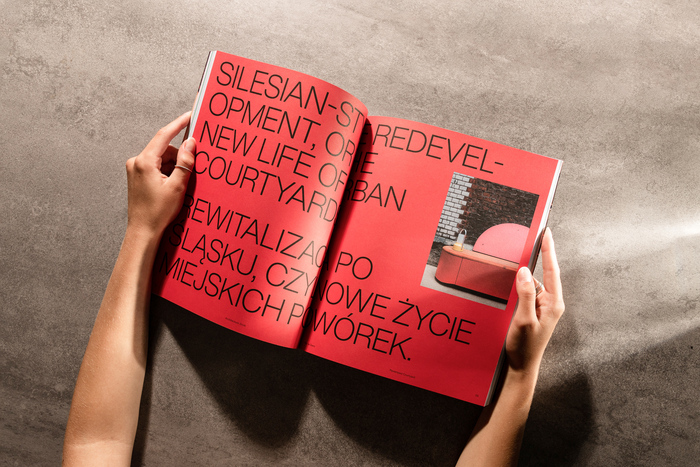 SILESIAN-ST REDEVEL-
OPMENT, OR THE
NEW LIFE OF URBAN
COURTYARD
REWITALIZAC PO
ŚLĄSKU, CZY NOWE ŻYCIE
MIEJSKICH PODWÓREK.